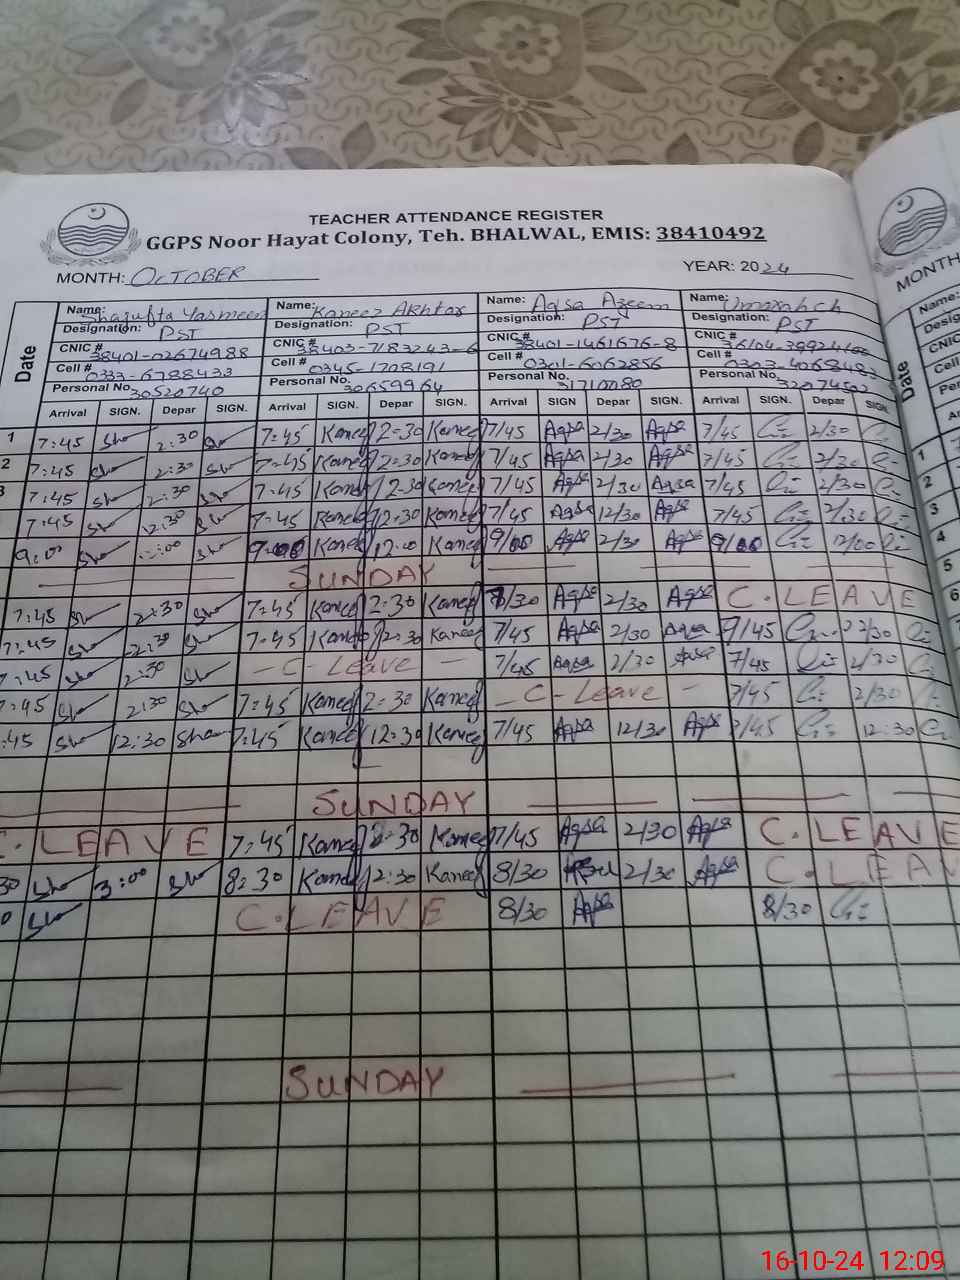 TEACHER ATTENDANCE REGISTER
GGPS Noor Hayat Colony, Teh. BHALWAL, EMIS: 38410492
MONTH: OCTOBER YEAR: 2024
MONTH
Date Name: Shagufta Yasmeen Name: Kaneez Akhtar Name: Aqsa Azeem Name:
Designation: PST Designation: PST Designation: PST Designation: PST
CNIC # 38401-02674988 CNIC # 38403-7183243-6 CNIC # 38401-1461676-8 CNIC #
Cell # 0333-6788433 Cell # 0345-1708191 Cell # 0301-6062856 Cell #
Personal No. 30520740 Personal No. 30659964 Personal No. 31710080 Personal No.
Arrival SIGN. Depar SIGN. Arrival SIGN. Depar SIGN. Arrival SIGN Depar SIGN. Arrival SIGN. Depar SIGN.
1 7:45 Sha 2:30 Sha 7:45 Kaneez 2-30 Kaneez 7/45 Aqsa 2/30 Aqsa 7/45 2/30
2 7:45 Sha 2:30 Sha 7:45 Kaneez 2-30 Kaneez 7/45 Aqsa 2/30 Aqsa 7/45 2/30
3 7:45 Sha 2:30 Sha 7:45 Kaneez 2-30 Kaneez 7/45 Aqsa 2/30 Aqsa 7/45 2/30
7:45 Sha 12:30 Sha 7:45 Kaneez 12-30 Kaneez 7/45 Aqsa 12/30 Aqsa 7/45
9:00 Sha 12:00 Sha 9:00 Kaneez 12:00 Kaneez 9/00 Aqsa 2/30 Aqsa 9/00 12/00
SUNDAY
7:45 Sha 2:30 Sha 7:45 Kaneez 2:30 Kaneez 8/30 Aqsa 2/30 Aqsa C.LEAVE
7:45 Sha 2:30 Sha 7:45 Kaneez 2:30 Kaneez 7/45 Aqsa 2/30 Aqsa 9/45 2/30
7:45 Sha 2:30 Sha - C - Leave - 7/45 Aqsa 2/30 Aqsa 7/45 2/30
7:45 Sha 2:30 Sha 7:45 Kaneez 2-30 Kaneez - C - Leave - 7/45 2/30
:45 Sha 12:30 Sha 7:45 Kaneez 12:30 Kaneez 7/45 Aqsa 12/30 Aqsa 7/45 12:30
SUNDAY
C.LEAVE 7:45 Kaneez 2-30 Kaneez 7/45 Aqsa 2/30 Aqsa C.LEAVE
30 Sha 3:00 Sha 8:30 Kaneez 2:30 Kaneez 8/30 2/30 Aqsa C.LEAV
0 Sha C.LEAVE 8/30 Aqsa 8/30
SUNDAY
Date
Name:
CNIC
Cell
1
2
3
4
5
6
16-10-24 12:09